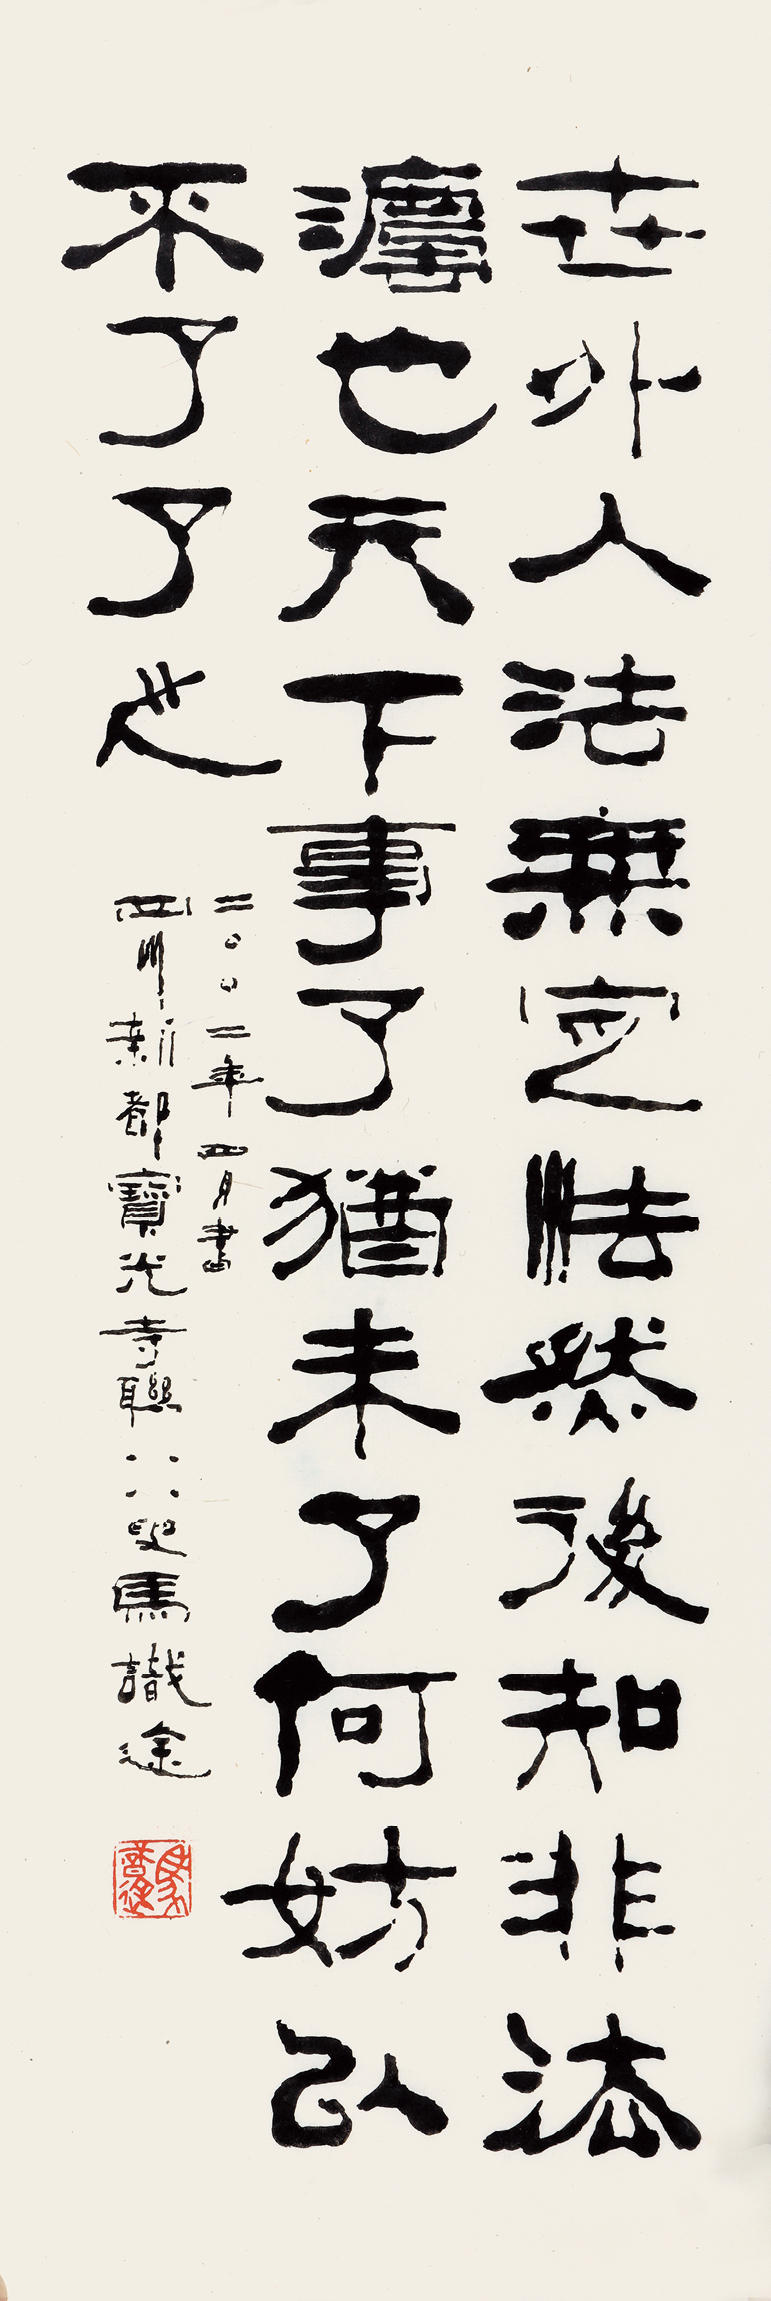 世外人法無定法然後知非法
灋也天下事了猶未了何妨以
不了了之
二〇〇二年四月書
四川新都寶光寺聯八八叟馬識途
馬識途